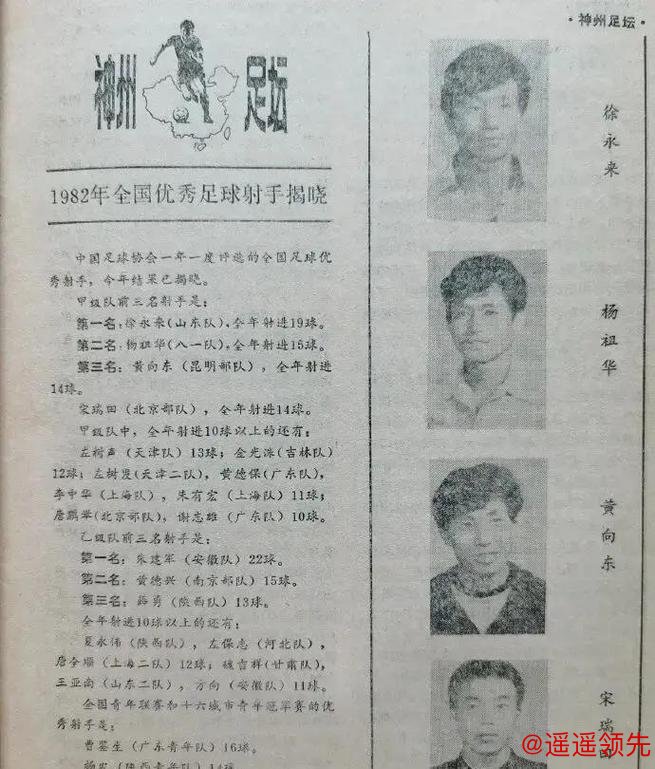 ·神州足坛·
神州 足坛
1982年全国优秀足球射手揭晓
中国足球协会一年一度评选的全国足球优
秀射手，今年结果已揭晓。
甲级队前三名射手是：
第一名：徐永来(山东队)，全年射进19球。
第二名：杨祖华(八一队)，全年射进15球。
第三名：黄向东（昆明部队），全年射进
14球。
宋瑞田（北京部队），全年射进14球。
甲级队中，全年射进10球以上的还有：
左树声（天津队）13球；金光洙(吉林队)
12球；左树发(天津二队)，黄德保(广东队)，
李中华（上海队），朱有宏（上海队）11球；
唐鹏举(北京部队)，谢志雄（广东队）10球。
乙级队前三名射手是：
第一名：朱建军（安徽队）22球。
第二名：黄德兴（南京部队）15球。
第三名：薛勇（陕西队）13球。
全年射进10球以上的还有：
夏永伟（陕西队），左保志（河北队），
唐全顺（上海二队）12球；魏吉祥(甘肃队)，
王亚南（山东二队），方向（安徽队）11球。
全国青年联赛和十六城市青年冠军赛的优
秀射手是：
曹鉴生（广东青年队）16球。
（陕西青年队）14球
徐永来
杨祖华
黄向东
宋瑞田
@遥遥领先